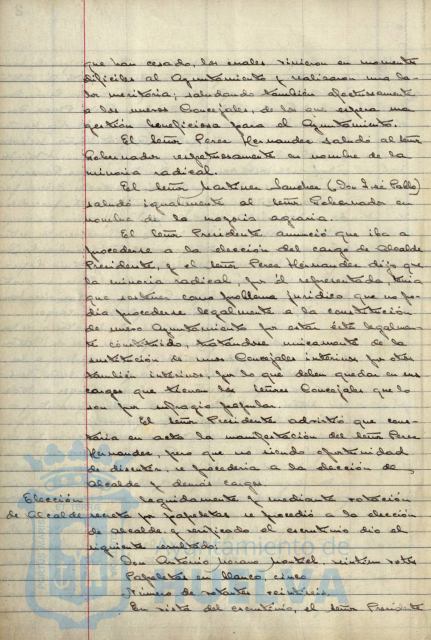 que han cesado, los cuales vinieron en momentos
difíciles al Ayuntamiento y realizaron una la-
bor meritoria; saludando también afectuosamente
a los nuevos Concejales, de los que espera una
gestión beneficiosa para el Ayuntamiento.
El señor Perez Hernandez saludó al señor
Gobernador respetuosamente en nombre de la
minoria radical.
El señor Martinez Sanchez (Don José Pablo)
saludó igualmente al señor Gobernador en
nombre de la mayoria agraria.
El señor Presidente anunció que iba a
procederse a la elección del cargo de Alcalde
Presidente, y el señor Perez Hernandez dijo que
la minoria radical, por él representada, tenia
que sostener como problema juridico que no po-
dia procederse legalmente a la constitución
de nuevo Ayuntamiento por estar éste legalmen-
te constituido, tratandose unicamente de la
sustitución de unos Concejales interinos por otros
también interinos, por lo que deben quedar en sus
cargos que tienen los señores Concejales que lo
son por sufragio popular.
El señor Presidente advirtió que cons-
taria en acta la manifestación del señor Perez
Hernandez, pero que no siendo oportunidad
de discutir, se procederia a la elección de
Alcalde y demás cargos.
Elección Seguidamente y mediante votación
de Alcalde secreta por papeletas se procedió a la elección
de Alcalde y verificado el escrutinio dió el
siguiente resultado:
Don Antonio
Papeletas en blanco, cinco
Número de votantes
En vista del escrutinio, el señor Presidente
Ayuntamiento de